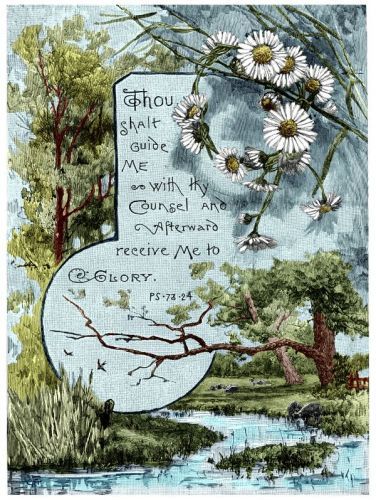 Thou
shalt
guide
ME
with thy
Counsel and
Afterward
receive Me to
Glory.
PS·73·24